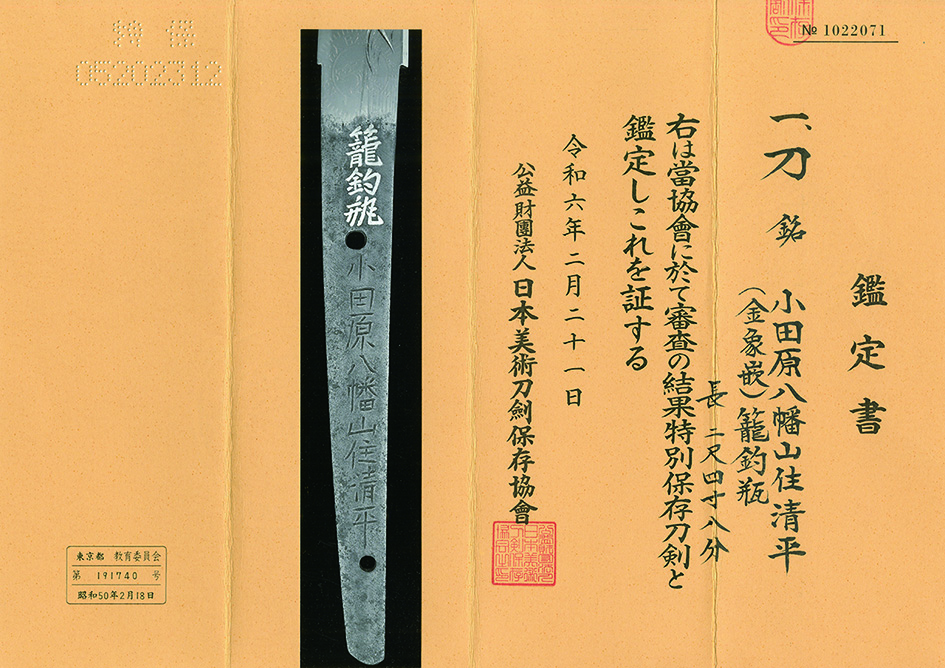 № 1022071
鑑定書
一、刀 銘 小田原八幡山住清平
(金象嵌)籠釣瓶
長 二尺四寸八分
右は當協會に於て審査の結果特別保存刀剣と
鑑定しこれを証する
令和六年二月二十一日
公益財團法人日本美術刀劍保存協會
籠釣瓶
小田原八幡山住清平
特保
05202312
東京都 教育委員会
第 191740 号
昭和50年2月18日